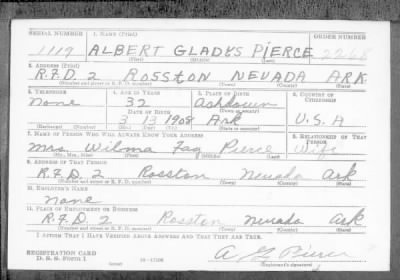 SERIAL NUMBER 1. NAME (Print) ORDER NUMBER
1119 ALBERT GLADYS PIERCE 2268
(First) (Middle) (Last)
2. ADDRESS (Print)
R.F.D. 2 ROSSTON NEVADA ARK.
(Number and street or R. F. D. number) (Town) (County) (State)
3. TELEPHONE 4. AGE IN YEARS 5. PLACE OF BIRTH 6. COUNTRY OF CITIZENSHIP
None 32 Ashdown
DATE OF BIRTH (Town or county)
3 13 1908 Ark U.S.A
(Exchange) (Number) (Mo.) (Day) (Yr.) (State or country)
7. NAME OF PERSON WHO WILL ALWAYS KNOW YOUR ADDRESS 8. RELATIONSHIP OF THAT PERSON
Mrs. Wilma Fay Pierce Wife
(Mr., Mrs., Miss) (First) (Middle) (Last)
9. ADDRESS OF THAT PERSON
R.F.D. 2 Rosston Nevada Ark
(Number and street or R. F. D. number) (Town) (County) (State)
10. EMPLOYER'S NAME
None
11. PLACE OF EMPLOYMENT OR BUSINESS
R.F.D. 2 Rosston Nevada Ark
(Number and street or R. F. D. number) (Town) (County) (State)
I AFFIRM THAT I HAVE VERIFIED ABOVE ANSWERS AND THAT THEY ARE TRUE.
REGISTRATION CARD A G Pierce
D. S. S. Form 1 (Registrant's signature)